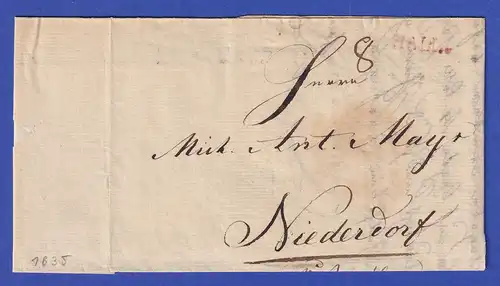 HALL.
8
Herrn
Mich. Ant. Mayr
Niederdorf
1835